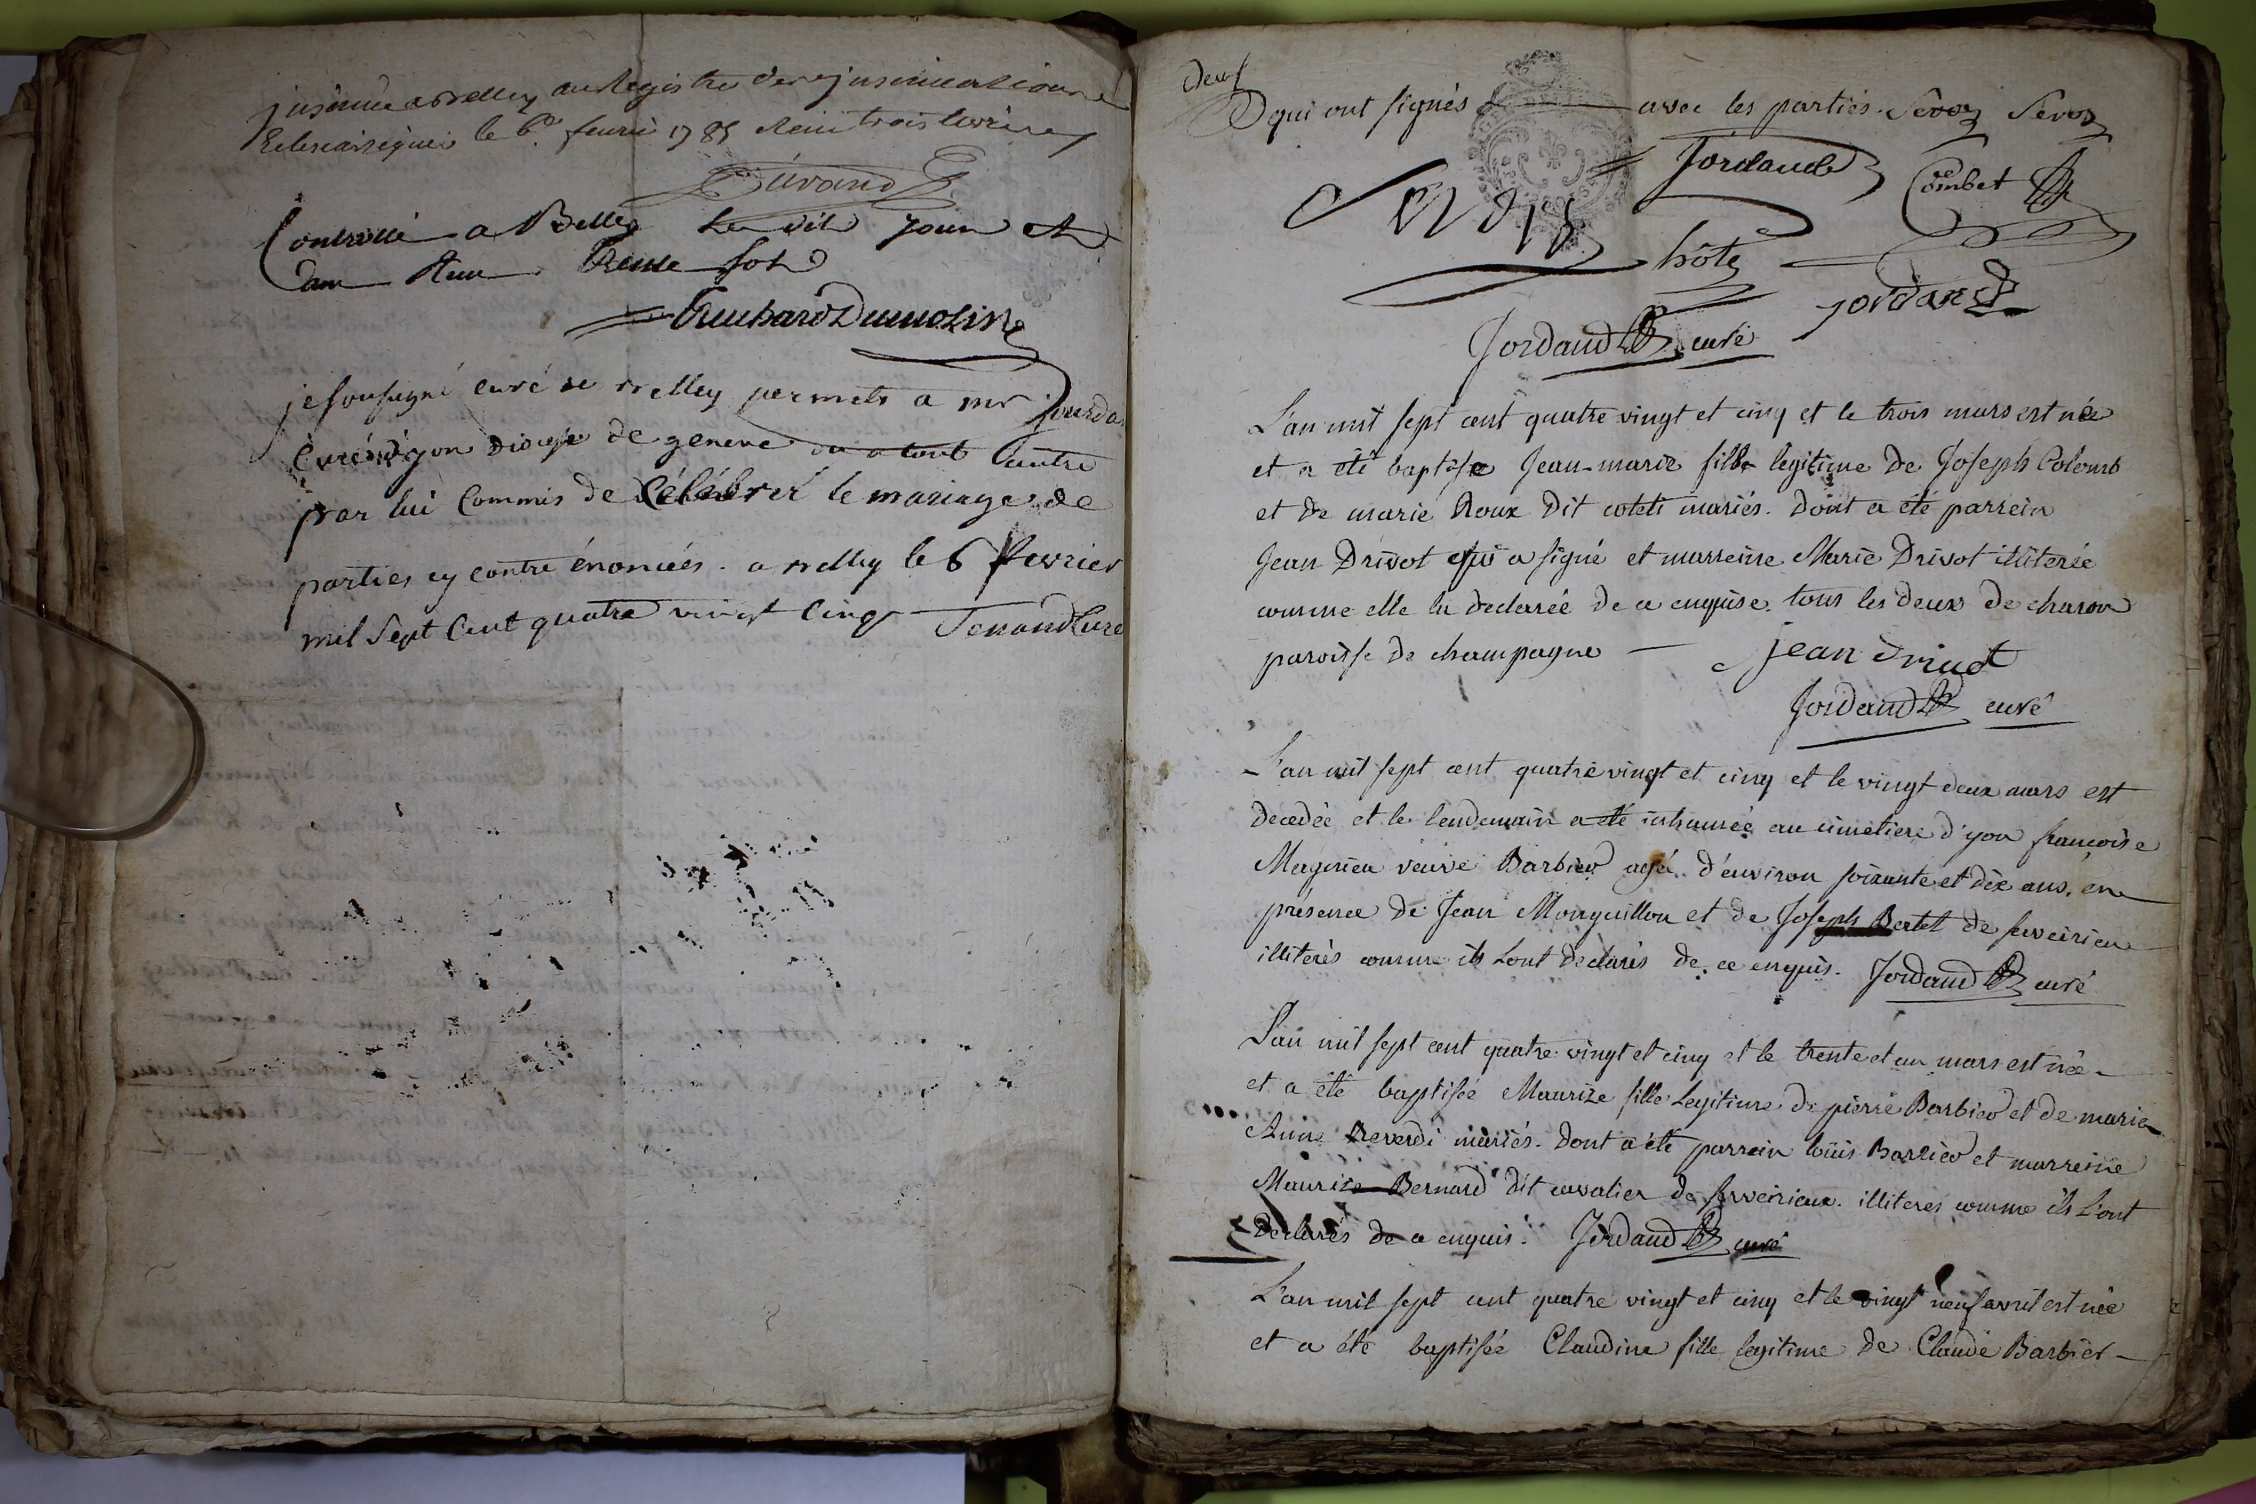 insinué a Belley au Registre des insinuations
Eclesiastiques le 6e fevrier 1785 Reçu trois livres
Controllé a Belley Les dits jour et
an Reçu Trente sols
je soussigné curé de Belley permets a mr jourda
curé d'yon diocese de geneve ou a tout autre
par lui Commis de Célébrer le mariage de
parties cy contre énoncées. a Belley le 6 fevrier
mil Sept Cent quatre vingt Cinq Curé
deux
qui ont signés avec les parties. Sevoz Sevoz
Jordand Combet
hôte
Jordan
Jordand curé
L'an mil sept cent quatre vingt et cinq et le trois mars est née
et a été baptisé Jean-marie fille legitime de Joseph Colomb
et de marie Roux Dit mariés. Dont a été parrein
Jean Drivet qui a signé et marreine Marie Drivot illiterée
comme elle la declareé de ce enquise. tous les deux de charon
paroisse de champagne — jean drivet
Jordand curé
L'an mil sept cent quatre vingt et cinq et le vingt deux mars est
decedée et le lendemain a été inhumée au cimetiere d'yon françoise
Magnien veuve Barbier agée d'environ soixante et dix ans, en
présence de Jean Monguillon et de Joseph Bertet de
illiterés comme ils Lont declarés de ce enquis. Jordand curé
L'an mil sept cent quatre vingt et cinq et le trente et un mars est née
et a été baptisée Maurize fille Legitime de pierre Barbier et de marie
Anne Reverdi mariés. Dont a été parrain loüis Barbier et marreine
Maurize Bernard dit cavalier de illiteres comme ils L'ont
declarés de ce enquis. Jordand curé
L'an mil sept cent quatre vingt et cinq et le vingt neuf avril est née
et a été baptisée Claudine fille legitime de Claude Barbier —